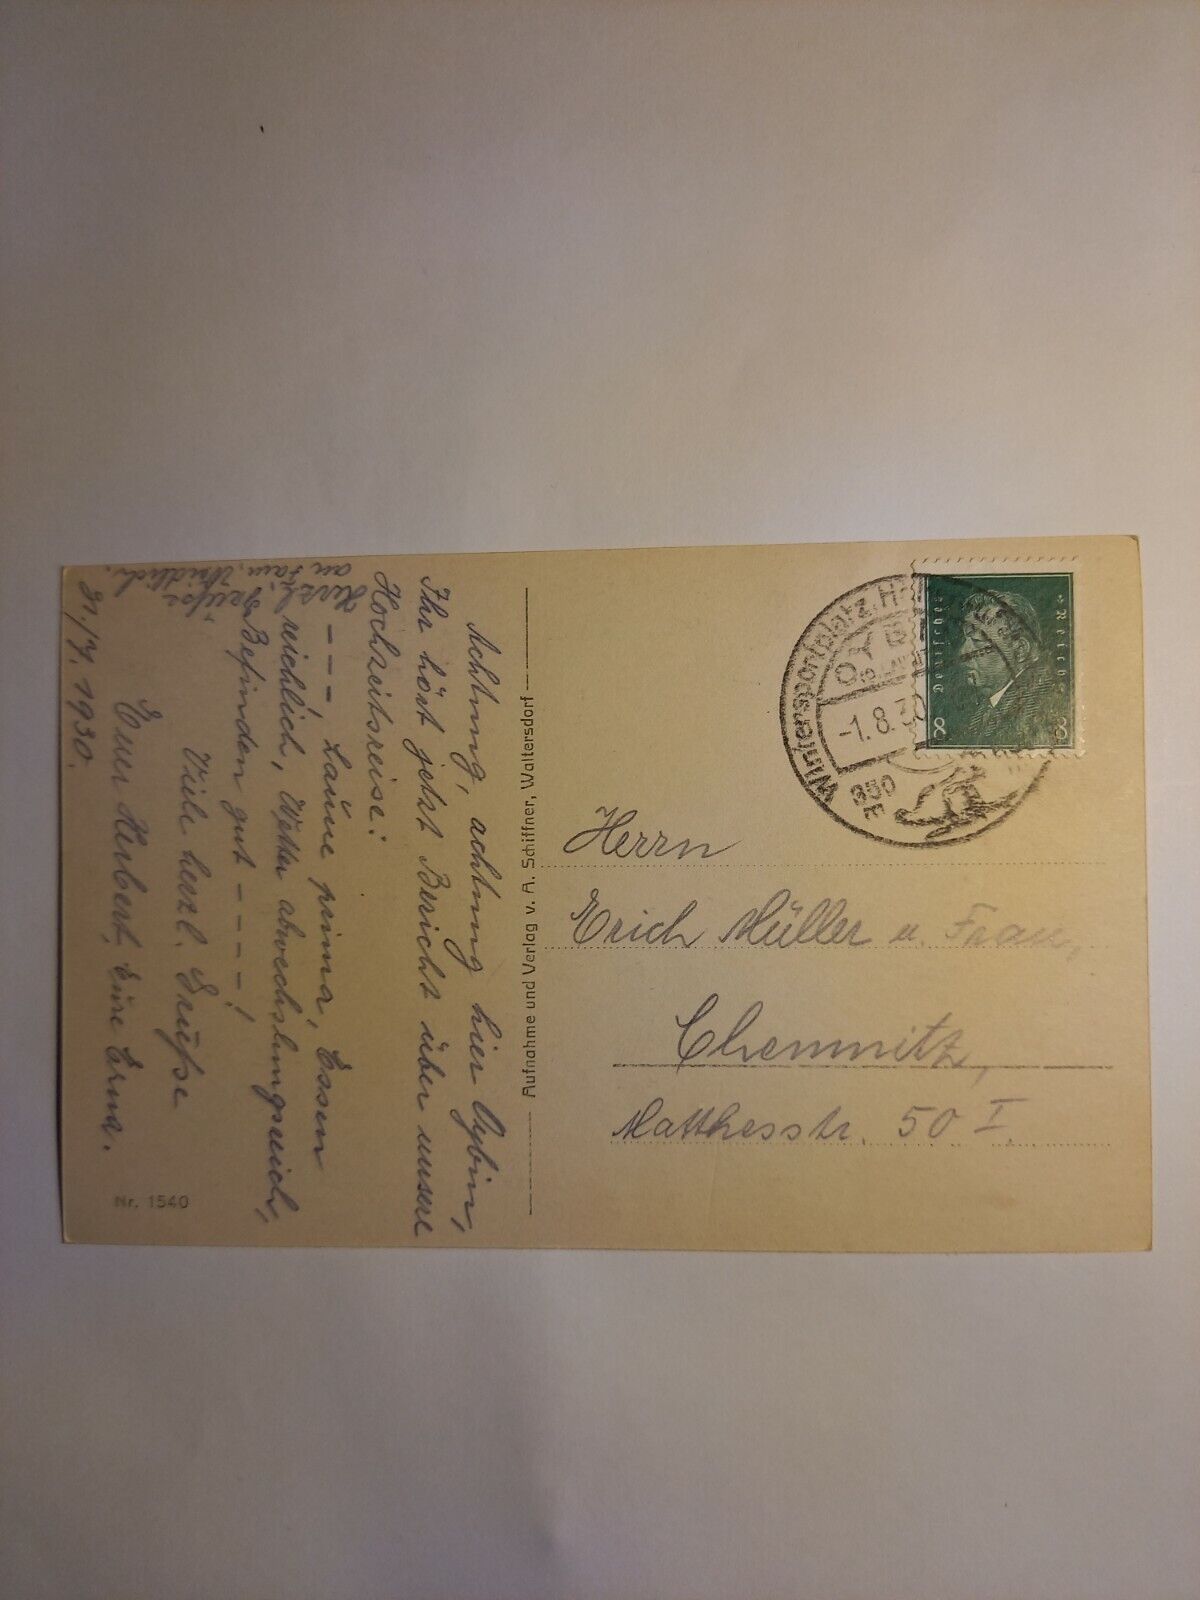 31./7. 1930.
Achtung, achtung hier Oybin,
Ihr hört jetzt Bericht über unsere
Hochzeitsreise:
- - - Laune prima, Essen
reichlich, Wetter abwechslungsreich,
Befinden gut - - - -!
Viele herzl. Grüße
Euer Herbert, Eure Erna.
Herzl. Grüße
an Fam. Weidlich.
Nr. 1540
Aufnahme und Verlag v. A. Schiffner, Waltersdorf
Wintersportplatz
OYBIN
-1.8.30
850
Deutsches Reich
8 8
Herrn
Erich Müller u. Frau,
Chemnitz,
Matthesstr. 50 I.